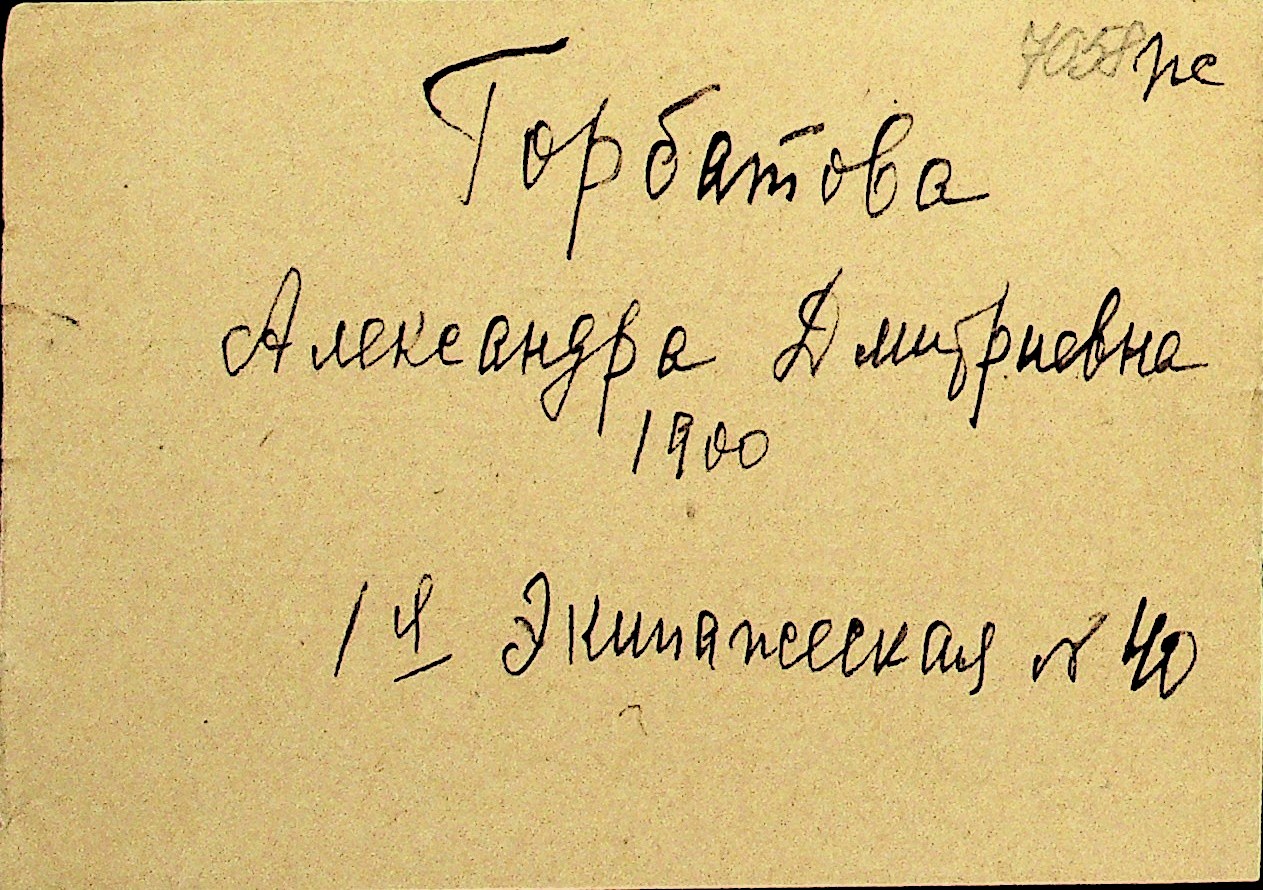 7058 пс
Горбатова
Александра Дмитриевна
1900
1я Экипажеская № 40